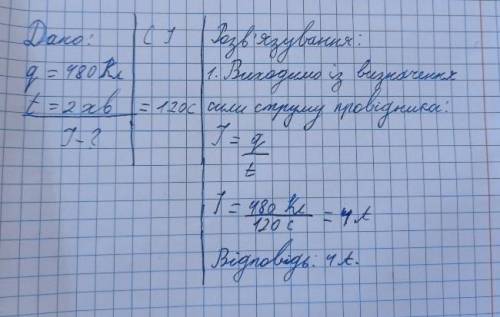 Дано:
q = 480 Кл
t = 2 хв
I - ?
СІ
= 120с
Розв'язування:
1. Виходимо із визначення
сили струму провідника:
I = q/t
I = 480 Кл/120 с = 4 А
Відповідь: 4 А.